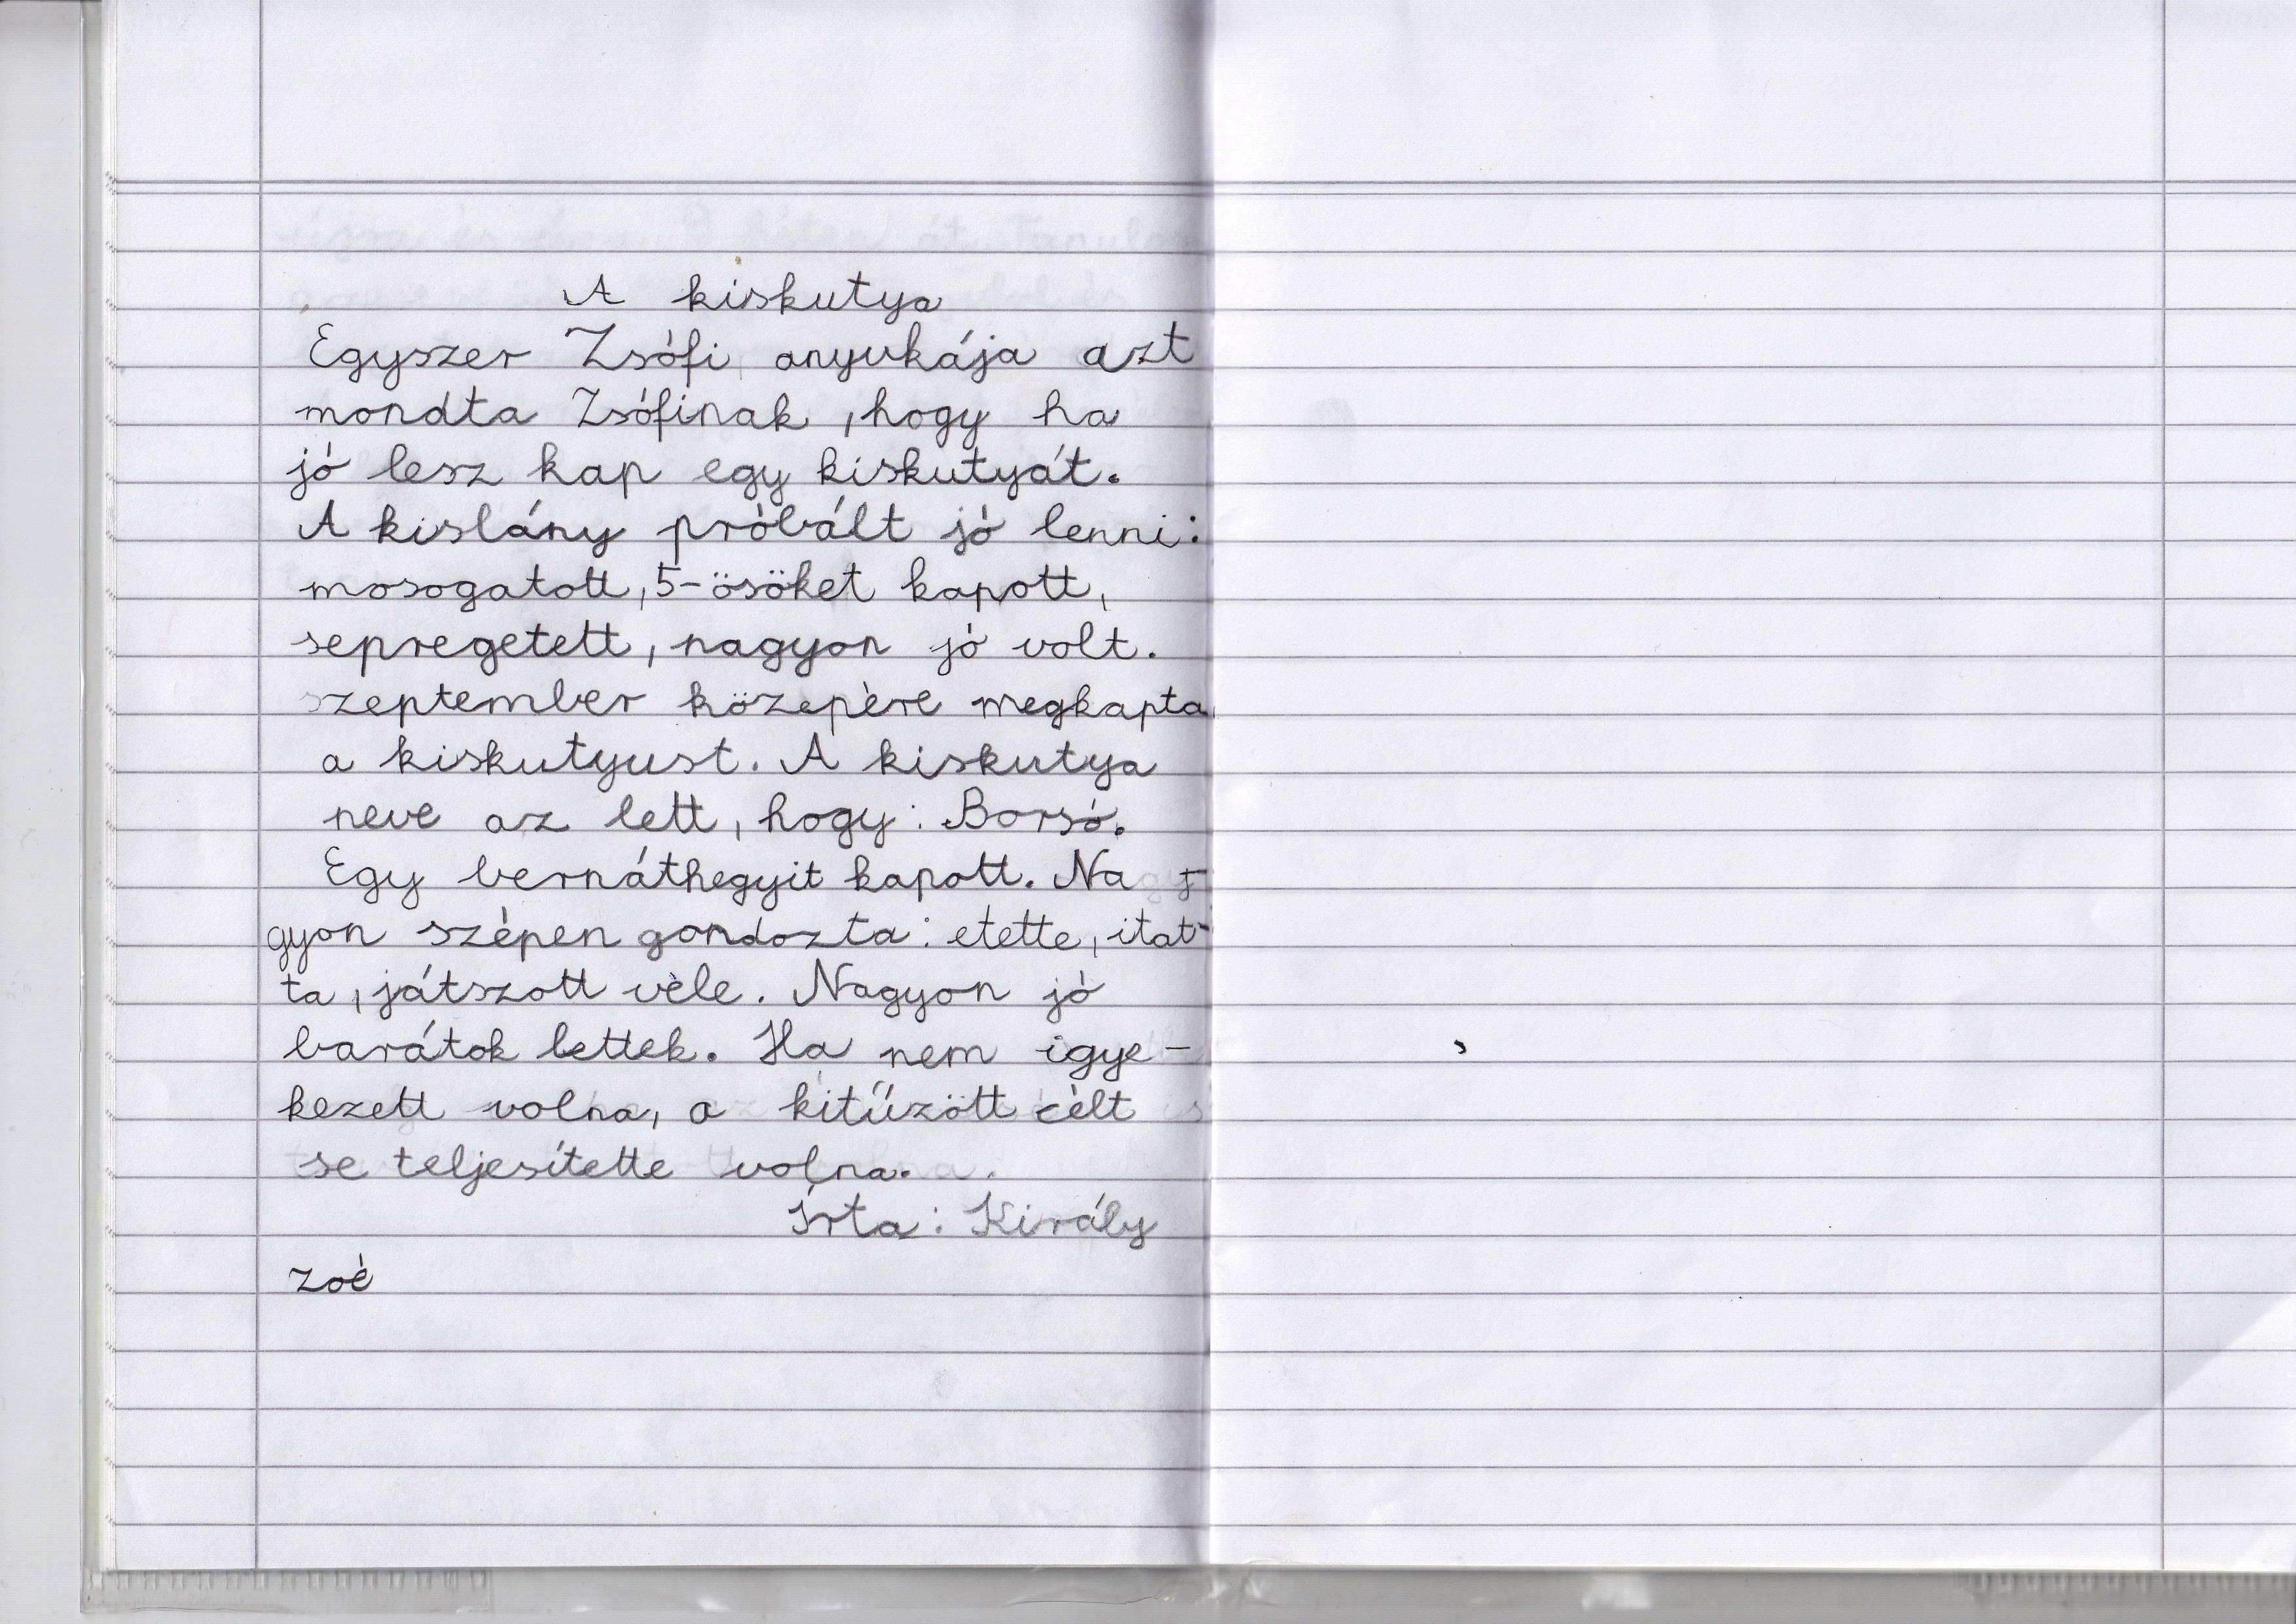 A kiskutya
Egyszer Zsófi anyukája azt
mondta Zsófinak, hogy ha
jó lesz kap egy kiskutyát.
A kislány próbált jó lenni:
mosogatott, 5-ösöket kapott,
sepregetett, nagyon jó volt.
szeptember közepére megkapta
a kiskutyust. A kiskutya
neve az lett, hogy: Borsó.
Egy bernáthegyit kapott. Na-
gyon szépen gondozta: etette, itat-
ta, játszott vele. Nagyon jó
barátok lettek. Ha nem igye-
kezett volna, a kitűzött célt
se teljesítette volna.
Írta: Király
Zoé